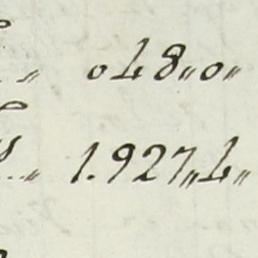 048„0„
1.927„4„